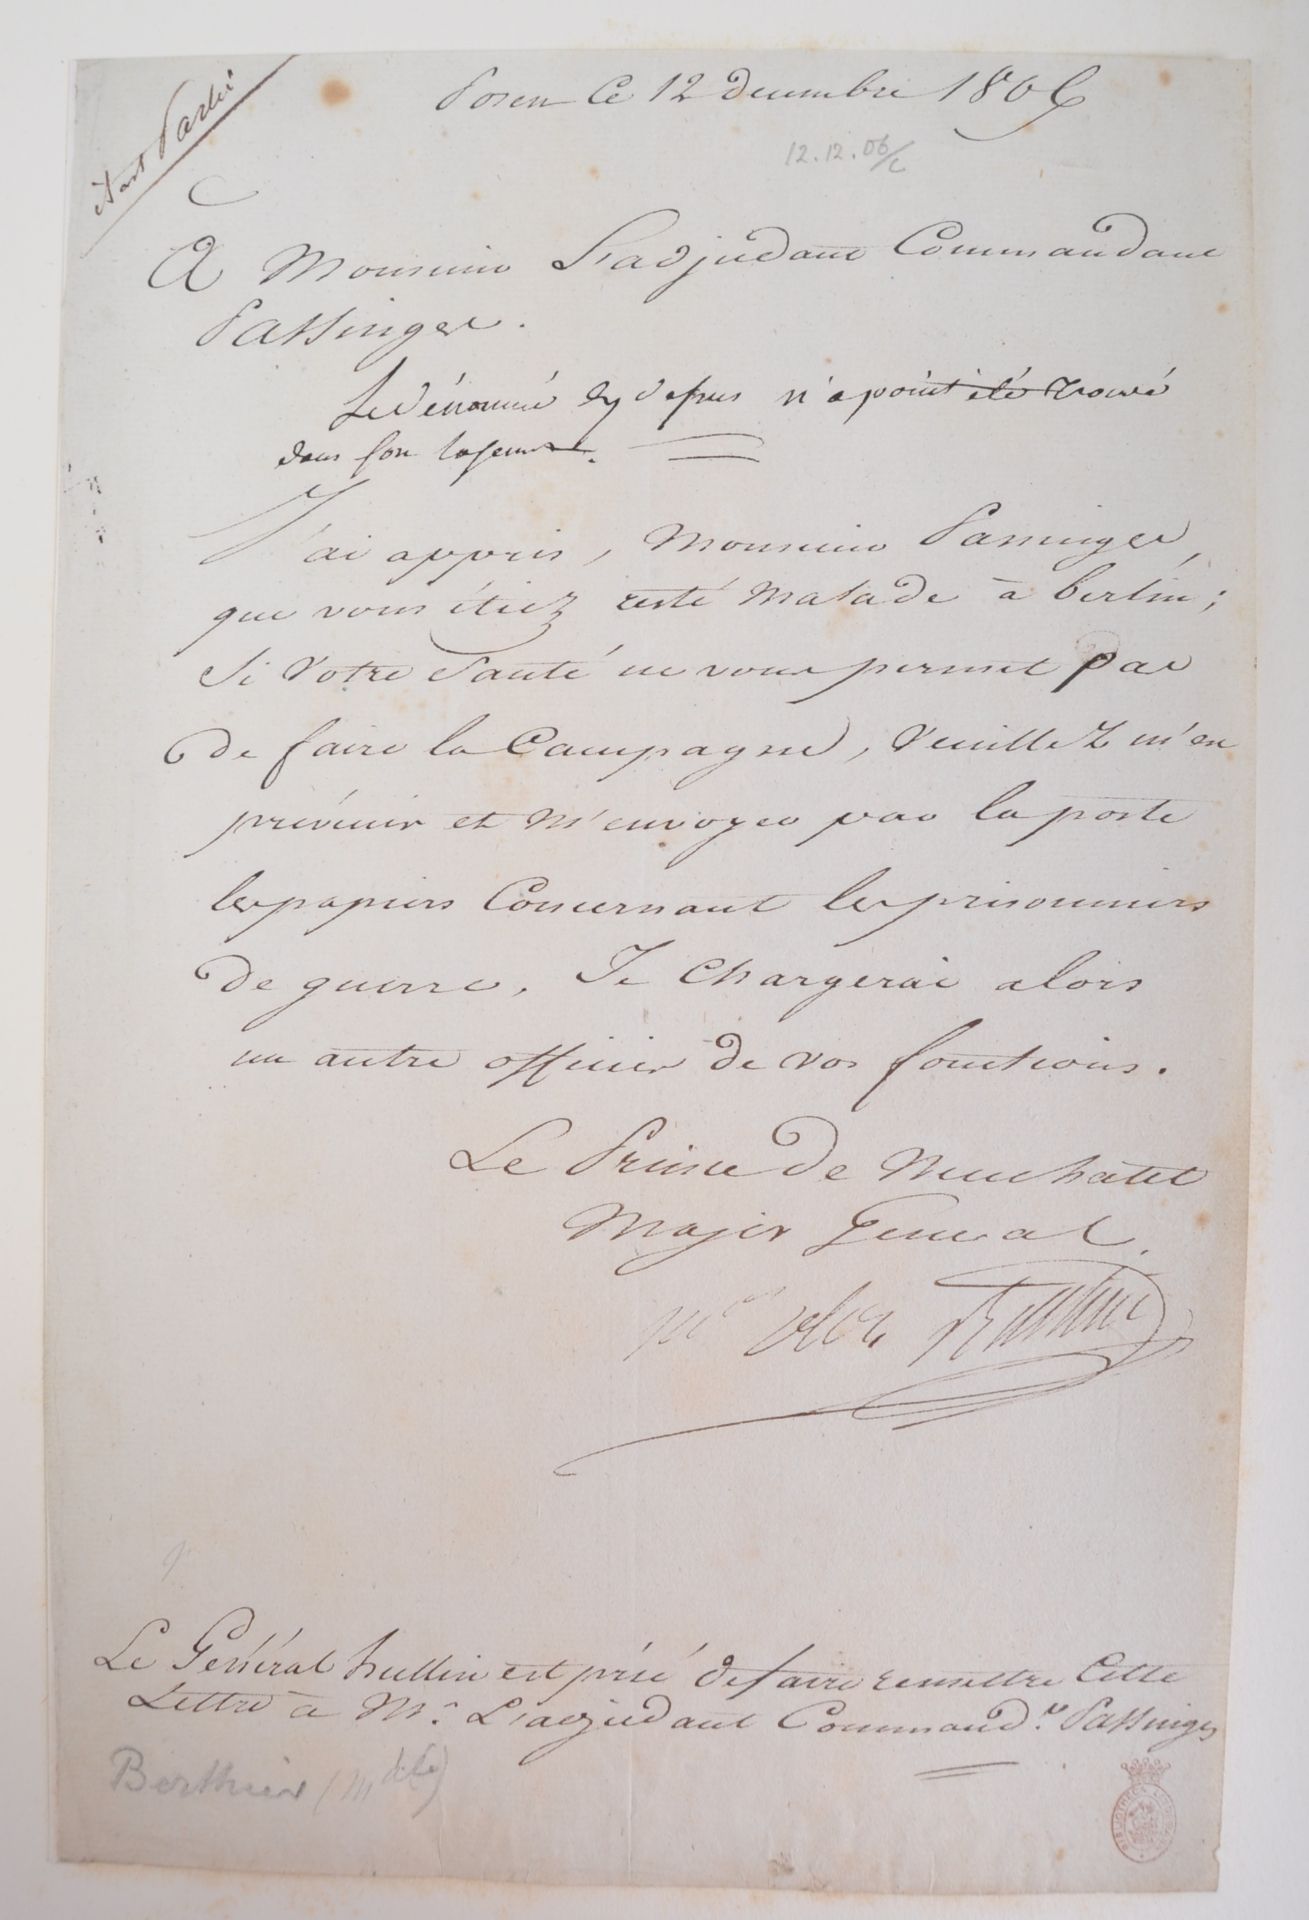 étant Parti
Posen Ce 12 decembre 1806
12.12.06/c
A Monsieur L'adjudant Commandant
Passinges.
Le dénommé cy dessus n'a point été trouvé
dans son logement.
J'ai appris, Monsieur Passinges,
que vous étiez resté malade à berlin;
Si votre Santé ne vous permet pas
de faire la Campagne, veuillez m'en
prévenir et m'envoyer par la poste
les papiers Concernant les prisonniers
de guerre, Je chargerai alors
un autre officier de vos fonctions.
Le Prince de Neuchatel
Major General
M^al Berthier
Le Général hullin est prié de faire remettre Cette
Lettre à M^r. L'adjudant Command^t Passinges
Berthier (M^al)